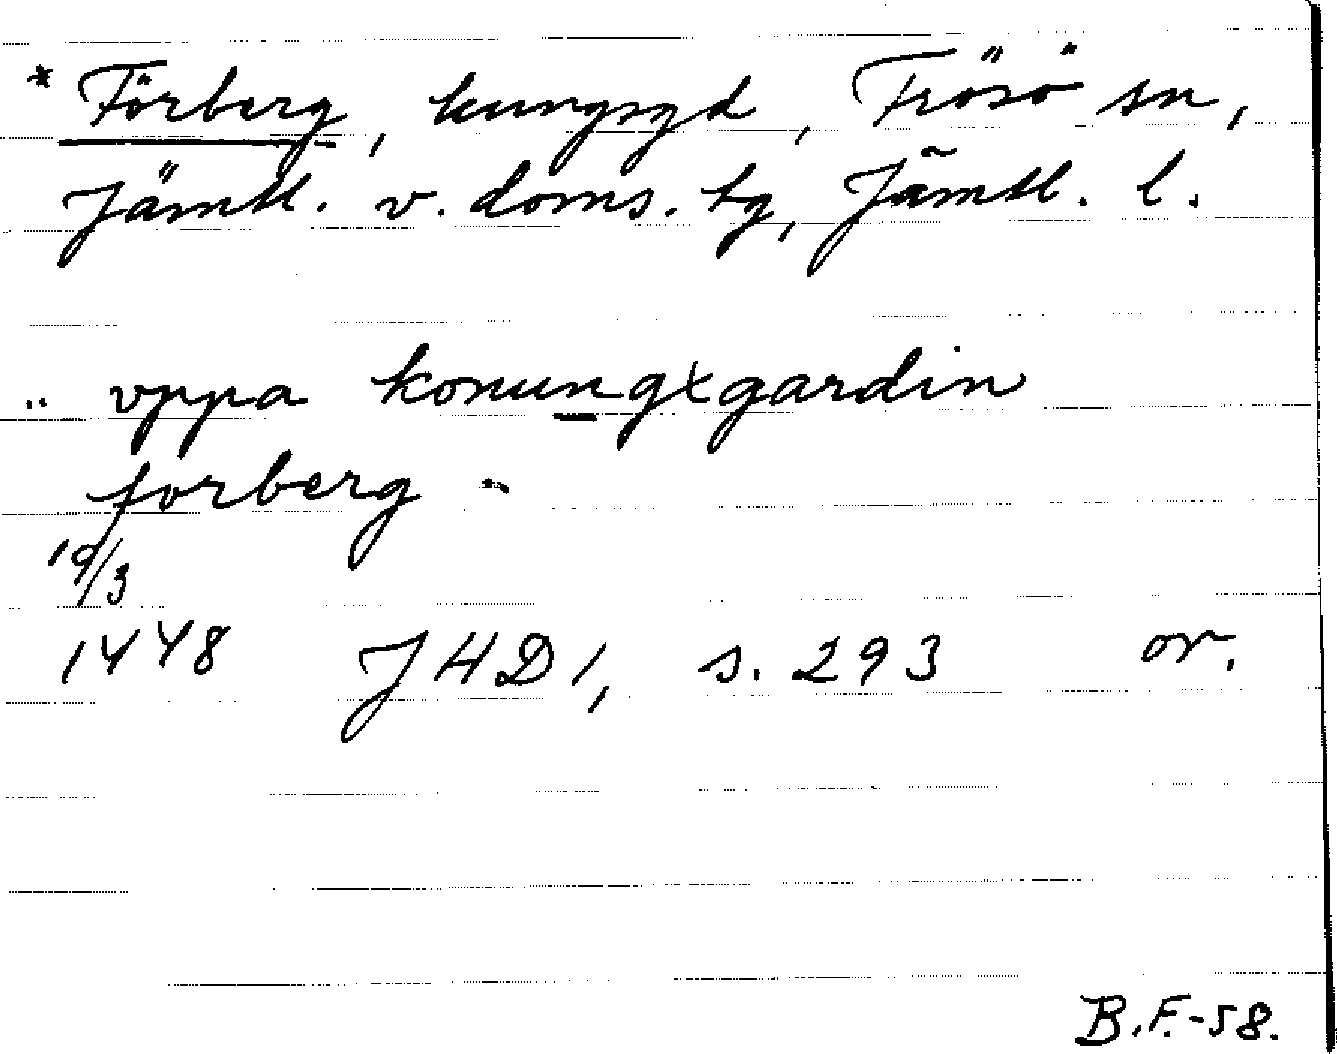 * Förberg, kungsgd, Frösö sn,
Jämtl. v. doms. tg, Jämtl. l.
.. vppa konungxgardin
forberg ..
19/3
1448 JHD 1, s. 293 or.
B.F.-58.